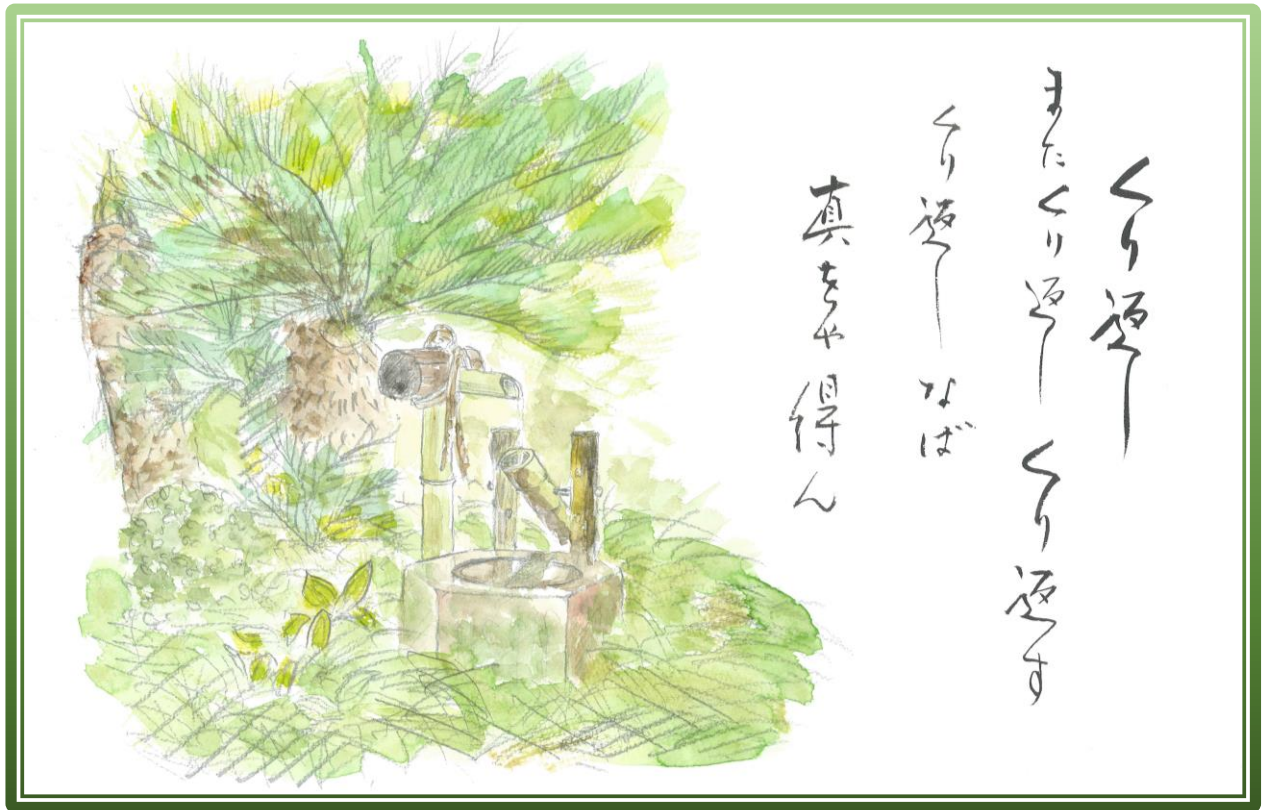 くり返し
またくり返し くり返す
くり返しなば
真をや得ん